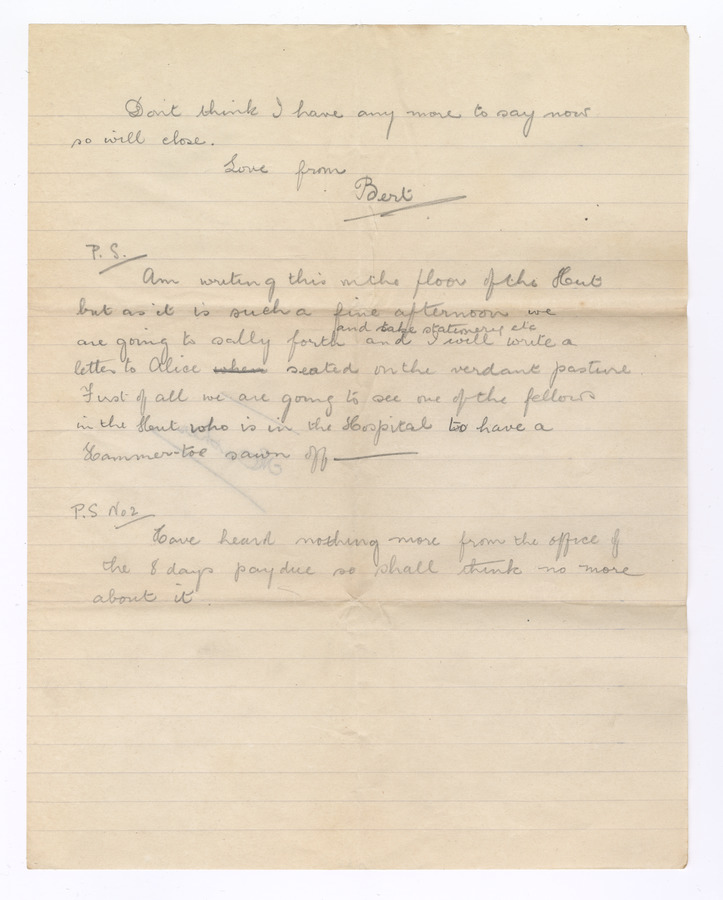 Don't think I have any more to say now
so will close.
Love from
Bert
P.S.
Am writing this on the floor of the Hut
but as it is such a fine afternoon we
and take stationery etc
are going to sally forth and I will write a
letter to Alice when seated on the verdant pasture.
First of all we are going to see one of the fellows
in the Hut who is in the Hospital to have a
Hammer-toe sawn off
P.S No 2
Have heard nothing more from the office of
the 8 days pay due so shall think no more
about it.